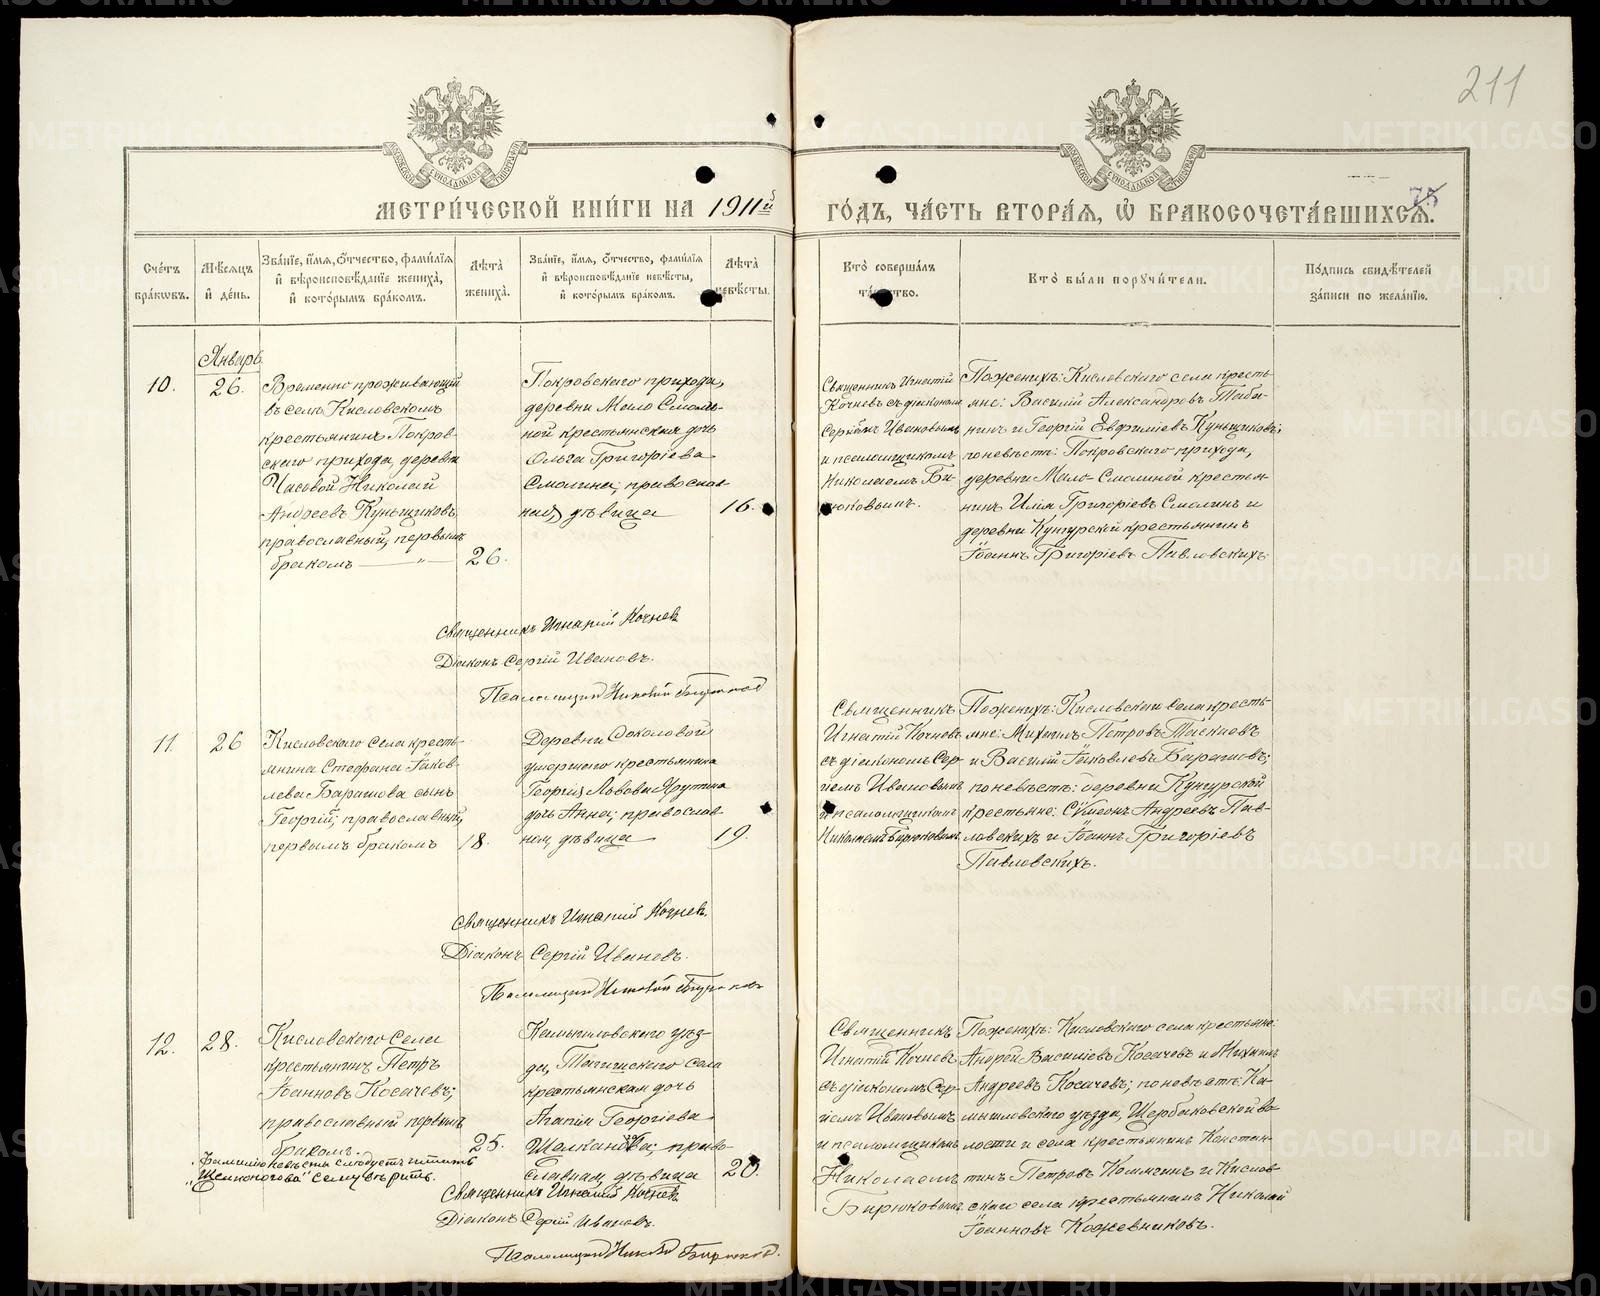 211
75
МЕТРИЧЕСКОЙ КНИГИ НА 1911й
ГОДЪ, ЧАСТЬ ВТОРАЯ, Ѡ БРАКОСОЧЕТАВШИХСЯ.
Счетъ браковъ.
Мѣсяцъ и день.
Званіе, имя, отчество, фамилія и вѣроисповѣданіе жениха, и которымъ бракомъ.
Лѣта жениха.
Званіе, имя, отчество, фамилія и вѣроисповѣданіе невѣсты, и которымъ бракомъ.
Лѣта невѣсты.
Кто совершалъ таинство.
Кто были поручители.
Подпись свидѣтелей записи по желанію.
Январь
10.
26.
Временно проживающій
въ селѣ Кисловскомъ
крестьянинъ Покров-
скаго прихода, деревни
Часовой Николай
Андреевъ Куньщиковъ,
православный, первымъ
бракомъ — „ —
26.
Покровскаго прихода,
деревни Мало Смоли-
ной крестьянская дочь
Ольга Григоріева
Смолина; православ-
ная, дѣвица
16.
Священникъ Игнатій
Кочневъ съ діакономъ
Сергіемъ Ивановымъ
и псаломщикомъ
Николаемъ Би-
рюковымъ.
По женихѣ: Кисловскаго села кресть-
яне: Василій Александровъ Таба-
нинъ и Георгій Евфиміевъ Куньщиковъ;
по невѣстѣ: Покровскаго прихода,
деревни Мало-Смолиной крестья-
нинъ Илія Григоріевъ Смолинъ и
деревни Кунгурской крестьянинъ
Іоаннъ Григоріевъ Павловскихъ.
Священникъ Игнатій Кочневъ
Діаконъ Сергій Ивановъ.
Псаломщикъ Николай Бирюковъ
11.
26
Кисловскаго села кресть-
янина Стефана Іаков-
лева Барашова сынъ
Георгій, православный,
первымъ бракомъ
18.
Деревни Соколовой
умершего крестьянина
Георгія Львова Ярутина
дочь Анна; православ-
ная, дѣвица
19.
Священникъ
Игнатій Кочневъ
съ діакономъ Сер-
гіемъ Ивановымъ
и псаломщикомъ
Николаемъ Бирюковымъ
По женихѣ: Кисловскаго села кресть-
яне: Михаилъ Петровъ Таскаевъ
и Василій Іаковлевъ Барашовъ;
по невѣстѣ: деревни Кунгурской
крестьяне: Сѵмеонъ Андреевъ Пав-
ловскихъ и Іоаннъ Григоріевъ
Павловскихъ.
Священникъ Игнатій Кочневъ.
Діаконъ Сергій Ивановъ.
Псаломщикъ Николай Бирюковъ
12.
28.
Кисловскаго села
крестьянинъ Петръ
Іоанновъ Косачевъ;
православный первымъ
бракомъ.
25.
„Фамилію невѣсты слѣдуетъ читать
„Щелконогова" сему вѣрить.
Камышловскаго уѣз-
да, Талицкаго села
крестьянская дочь
Агапія Георгіева
право-
славная, дѣвица
20.
Священникъ
Игнатій Кочневъ
съ діакономъ Сер-
гіемъ Ивановымъ
и псаломщикомъ
Николаемъ
Бирюковымъ.
По женихѣ: Кисловскаго села крестьяне:
Андрей Василіевъ Косачевъ и Михаилъ
Андреевъ Косачевъ; по невѣстѣ: Ка-
мышловскаго уѣзда, Щербаковской во-
лости и села крестьянинъ Констан-
тинъ Петровъ и Кислов-
скаго села крестьянинъ Николай
Іоанновъ Кожевниковъ.
Священникъ Игнатій Кочневъ
Діаконъ Сергій Ивановъ.
Псаломщикъ Николай Бирюковъ.
METRIKI.GASO-URAL.RU